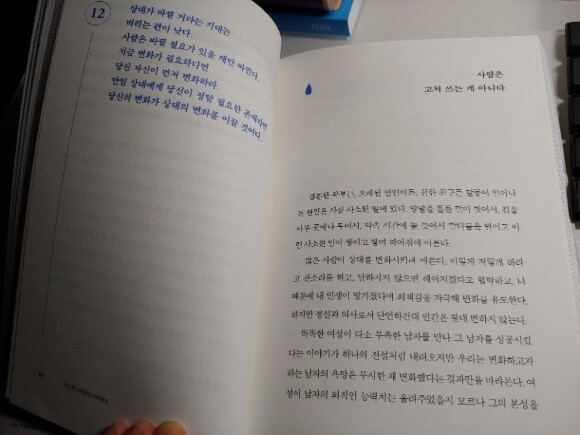 12
상대가 바뀔 거라는 기대는
버리는 편이 낫다.
사람은 바뀔 필요가 있을 때만 바뀐다.
지금 변화가 필요하다면
당신 자신이 먼저 변화하라.
만일 상대에게 당신이 정말 필요한 존재라면
당신의 변화가 상대의 변화를 이끌 것이다.
사람은
고쳐 쓰는 게 아니다
결혼한 부부든, 오래된 연인이든, 친한 친구든 갈등이 일어나
는 원인은 사실 사소한 일에 있다. 양말을 돌돌 말아 벗어서, 컵을
아무 곳에나 두어서, 약속 시간에 늘 늦어서 말다툼을 벌이고 이
런 사소한 일이 쌓이고 쌓여 헤어짐에 이른다.
많은 사람이 상대를 변화시키려 애쓴다. 이렇게 저렇게 하라
고 잔소리를 하고, 달라지지 않으면 헤어지겠다고 협박하고, 너
때문에 내 인생이 망가졌다며 죄책감을 자극해 변화를 유도한다.
하지만 정신과 의사로서 단언하건대 인간은 절대 변하지 않는다.
똑똑한 여성이 다소 부족한 남자를 만나 그 남자를 성공시킨
다는 이야기가 하나의 전설처럼 내려오지만 우리는 변화하고자
하는 남자의 욕망은 무시한 채 변화했다는 결과만을 바라본다. 여
성이 남자의 외적인 능력치는 올려주었을지 모르나 그의 본성을